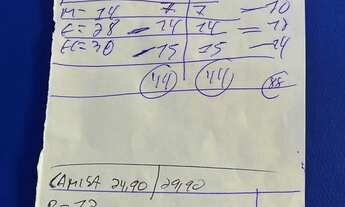 M = 14 7 7 — 10
G = 28 — 14 14 — 18
EG = 30 — 15 15 — 24
44 44 88
CAMISA 24,90 29,90